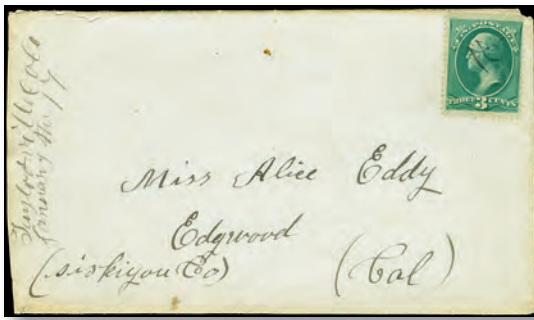 Colo
January the 17
U.S. POSTAGE
THREE 3 CENTS
Miss Alice Eddy
Edgwood
(siskiyou Co)
(Cal)